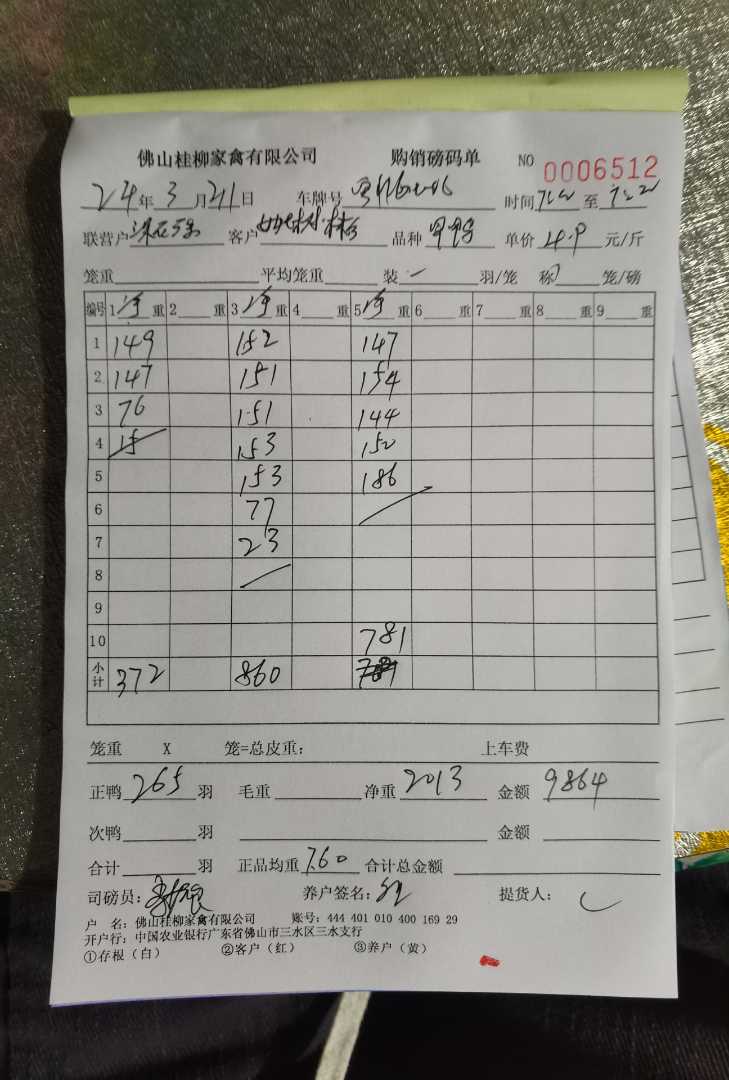 佛山桂柳家禽有限公司 购销磅码单 NO 0006512
24年3月21日 车牌号 时间 至
联营户 客户 品种 单价 4.9 元/斤
笼重 平均笼重 装 羽/笼 称 笼/磅
编号 1净重 2 重 3净重 4 重 5净重 6 重 7 重 8 重 9 重
1 149 152 147
2 147 151 154
3 76 151 144
4 15 153 150
5 153 186
6 77
7 23
8
9
10 781
小计 372 860
笼重 X 笼=总皮重: 上车费
正鸭 265 羽 毛重 净重 2013 金额 9864
次鸭 羽 金额
合计 羽 正品均重 7.60 合计总金额
司磅员: 养户签名: 提货人:
户 名: 佛山桂柳家禽有限公司 账号: 444 401 010 400 169 29
开户行: 中国农业银行广东省佛山市三水区三水支行
①存根(白) ②客户(红) ③养户(黄)